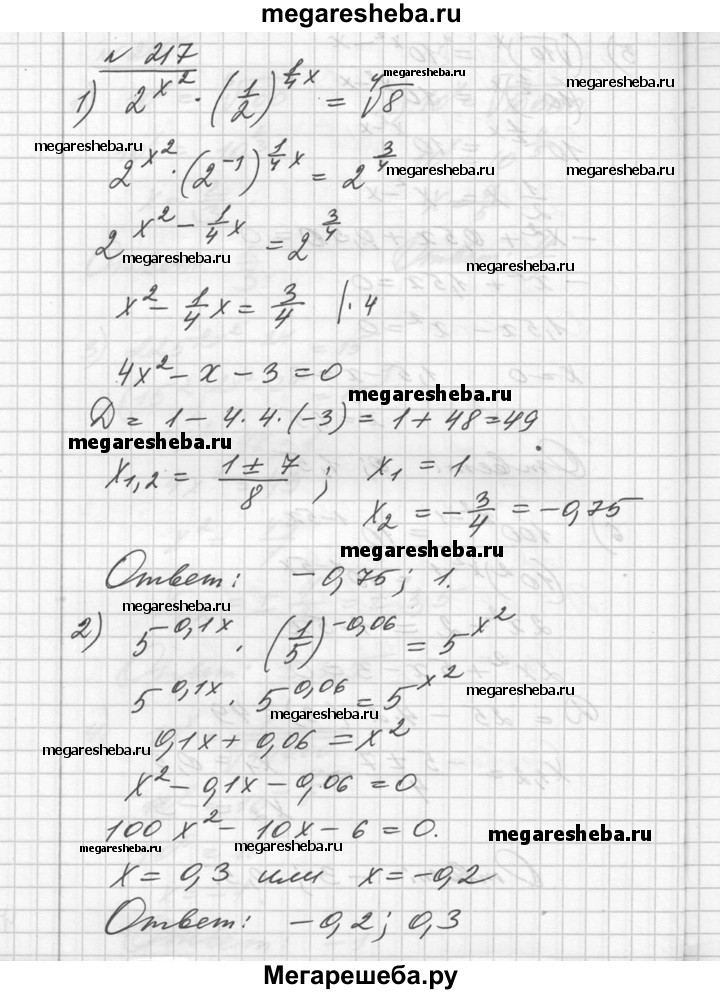 megaresheba.ru
№ 217
1) 2^{x^2} · (1/2)^{1/4 x} = ∜8
megaresheba.ru
megaresheba.ru
megaresheba.ru
2^{x^2} · (2^{-1})^{1/4 x} = 2^{3/4}
megaresheba.ru
2^{x^2 - 1/4 x} = 2^{3/4}
megaresheba.ru
megaresheba.ru
x^2 - 1/4 x = 3/4 |·4
4x^2 - x - 3 = 0
megaresheba.ru
D = 1 - 4·4·(-3) = 1 + 48 = 49
megaresheba.ru
x_{1,2} = (1 ± 7)/8 ; x_1 = 1
x_2 = -3/4 = -0,75
megaresheba.ru
Ответ: -0,75; 1.
megaresheba.ru
2) 5^{-0,1x} · (1/5)^{-0,06} = 5^{x^2}
5^{0,1x} · 5^{0,06} = 5^{x^2}
megaresheba.ru
megaresheba.ru
0,1x + 0,06 = x^2
megaresheba.ru
x^2 - 0,1x - 0,06 = 0
100x^2 - 10x - 6 = 0.
megaresheba.ru
megaresheba.ru
x = 0,3 или x = -0,2
Ответ: -0,2; 0,3
Мегарешеба.ру